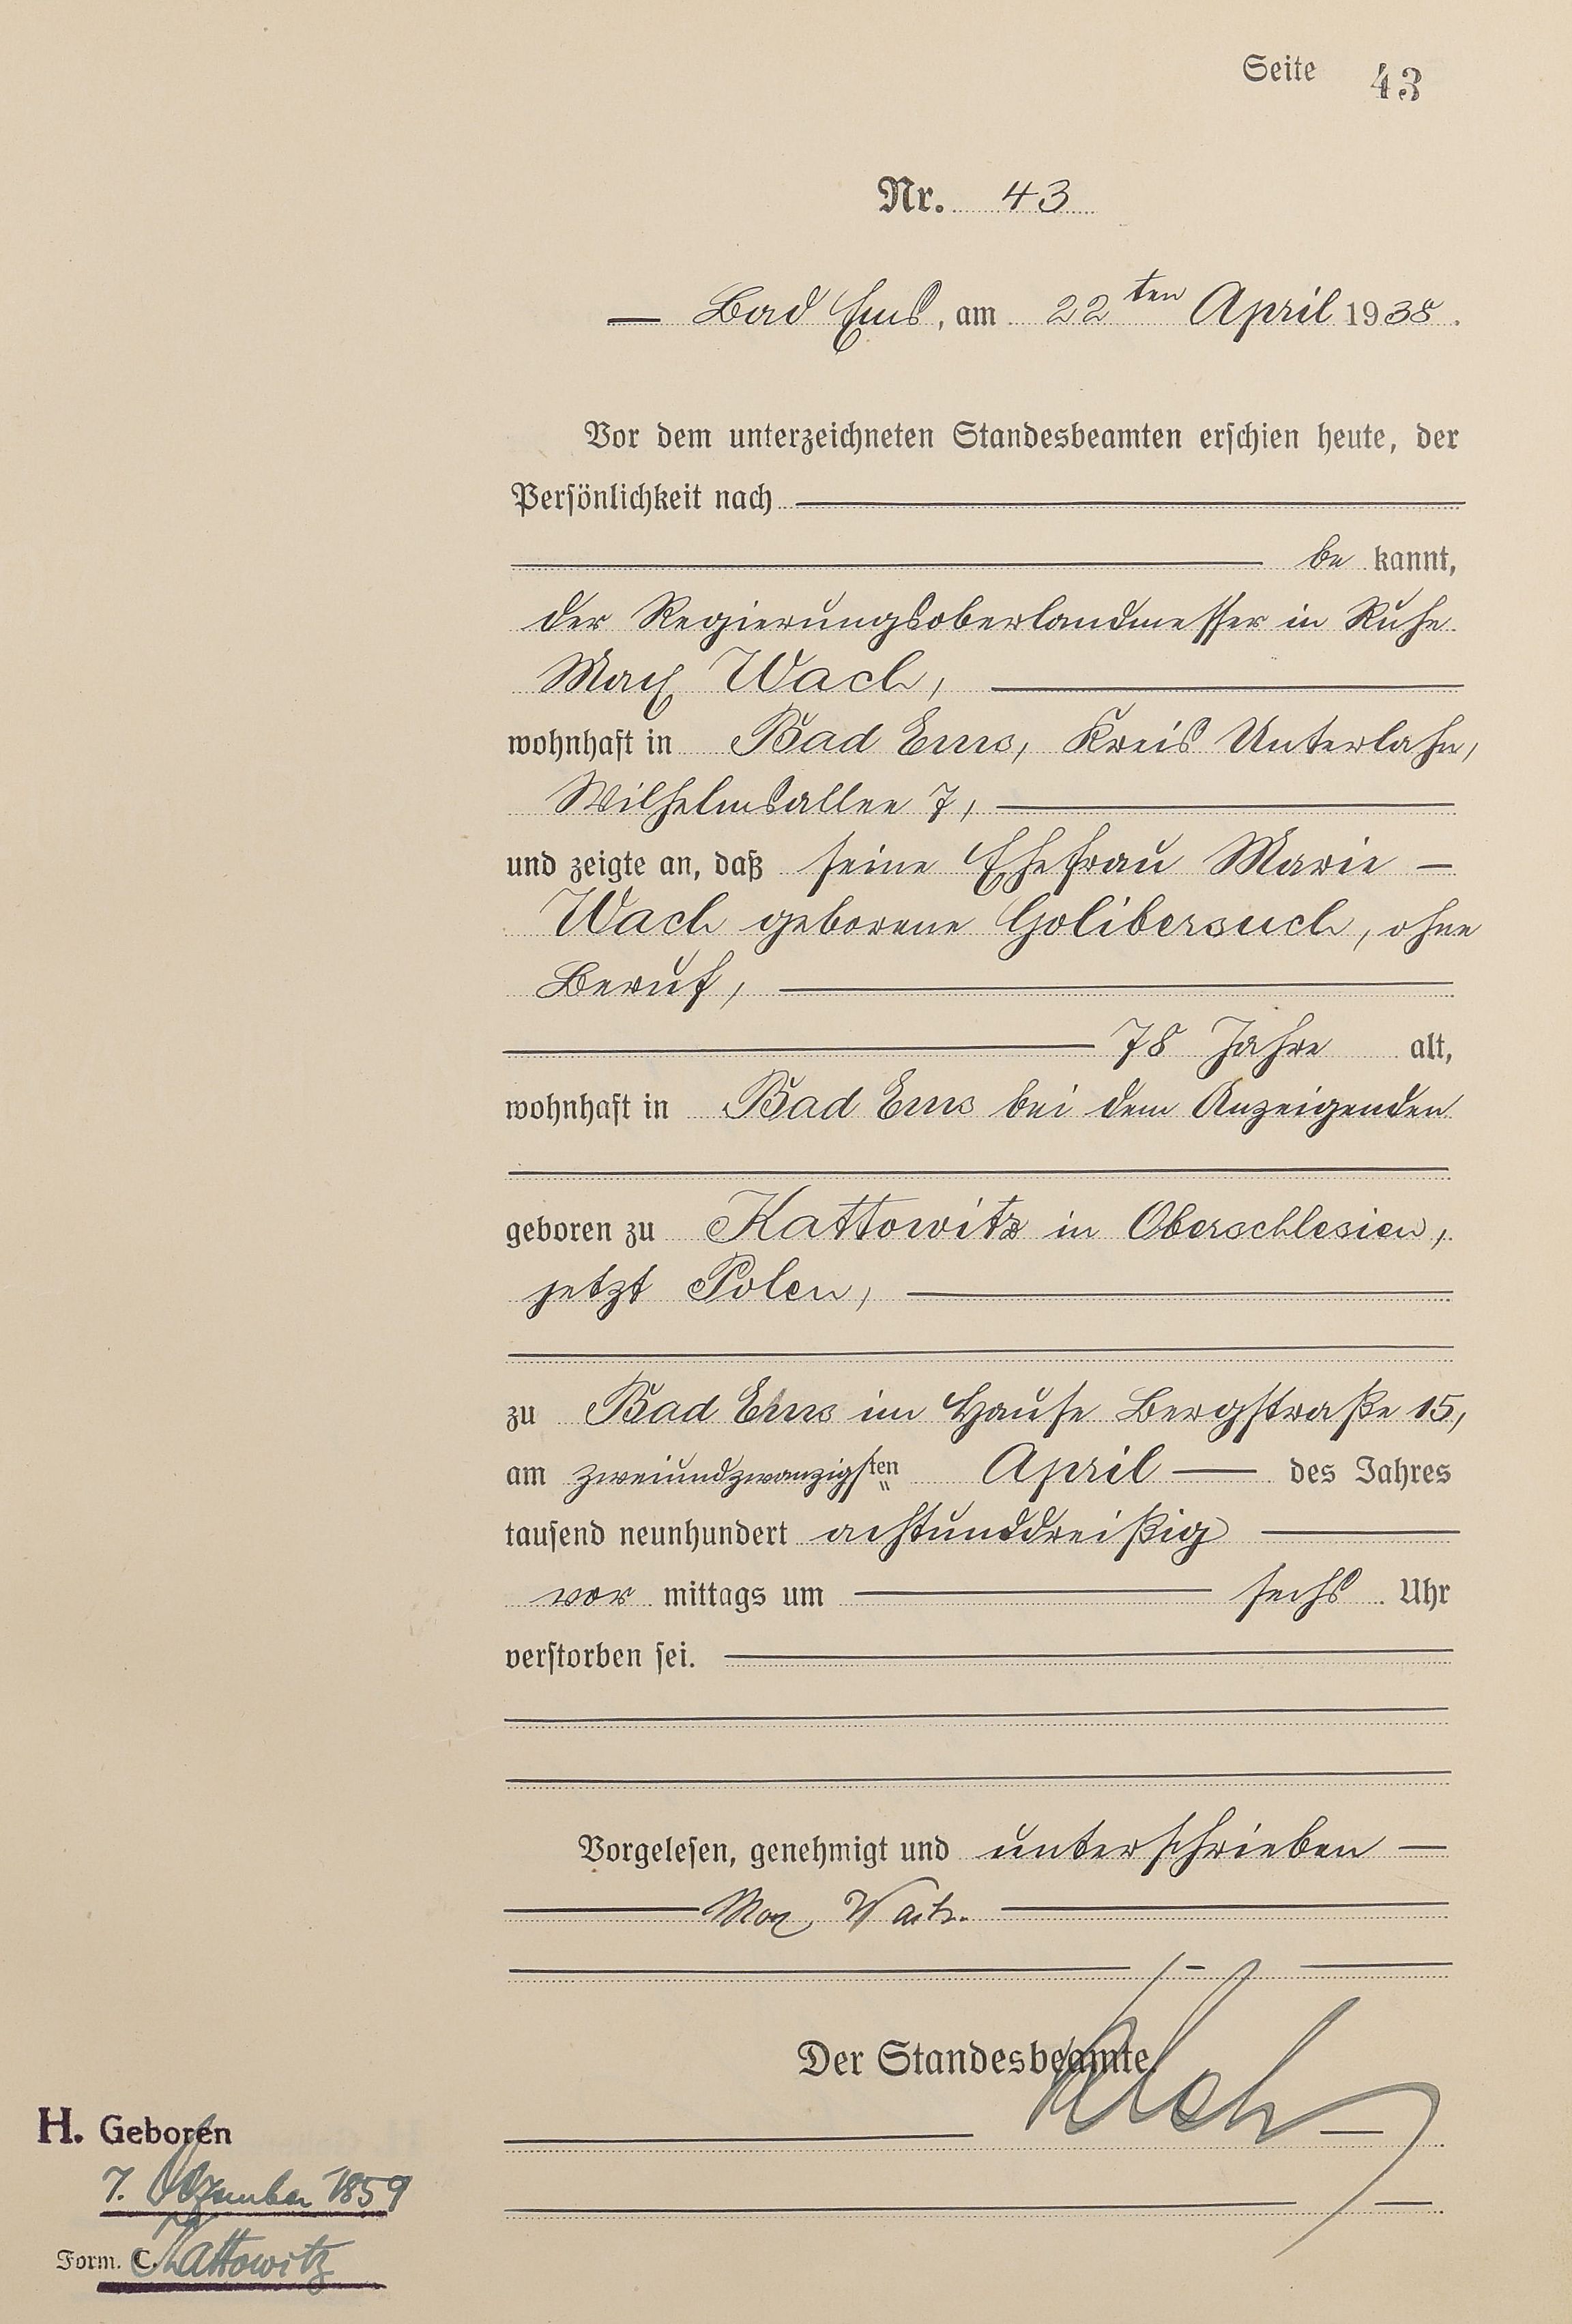 Seite 43
Nr. 43
Bad Ems, am 22ten April 1938.
Vor dem unterzeichneten Standesbeamten erschien heute, der
Persönlichkeit nach
be kannt,
der Regierungsoberlandmesser in Ruhe
Max Wach,
wohnhaft in Bad Ems, Kreis Unterlahn,
Wilhelmsallee 7,
und zeigte an, daß seine Ehefrau Marie
Wach geborene Golibersuch, ohne
Beruf,
78 Jahre alt,
wohnhaft in Bad Ems bei dem Anzeigenden
geboren zu Kattowitz in Oberschlesien,
jetzt Polen,
zu Bad Ems im Hause Bergstraße 15,
am zweiundzwanzigsten April des Jahres
tausend neunhundert achtunddreißig
vor mittags um sechs Uhr
verstorben sei.
Vorgelesen, genehmigt und unterschrieben
Max Wach.
Der Standesbeamte.
H. Geboren
7. Dezember 1859
Form. C. Kattowitz